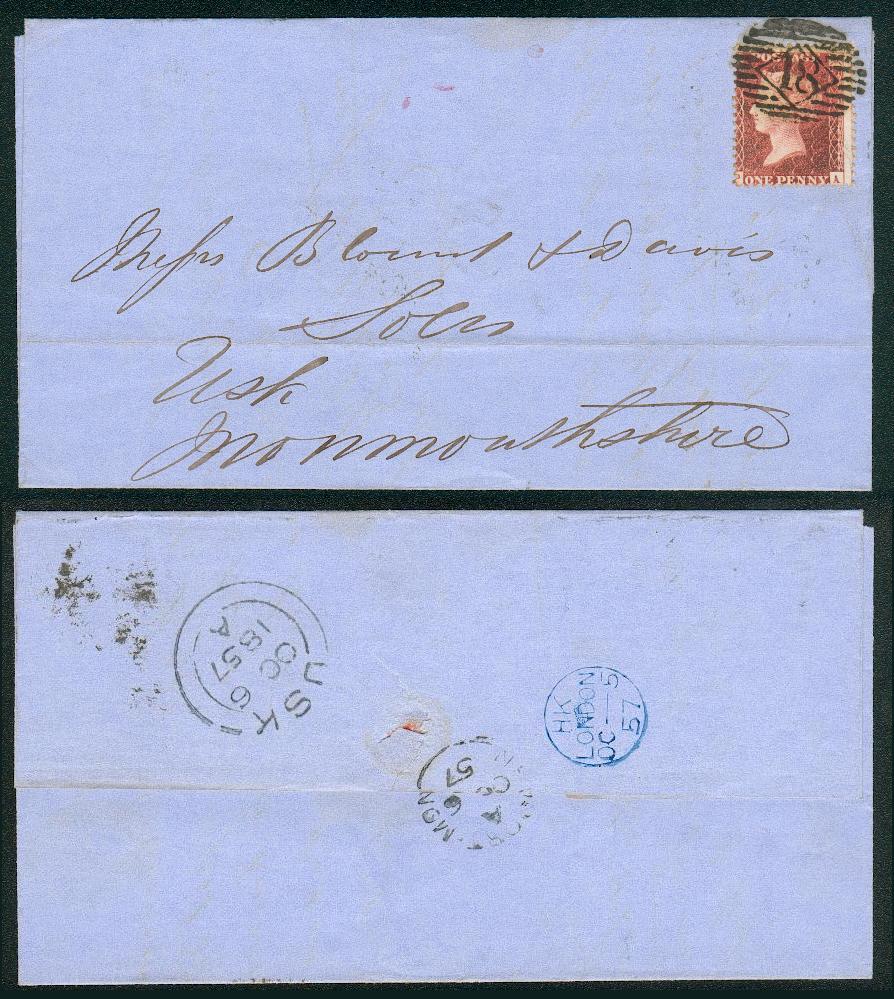 18
ONE PENNY A
Messrs Blount & Davis
Solrs
Usk
Monmouthshire
USK
A
1857
OC 6
HK
LONDON
OC 5
57
NEWPORT MON
A
OC 6
57